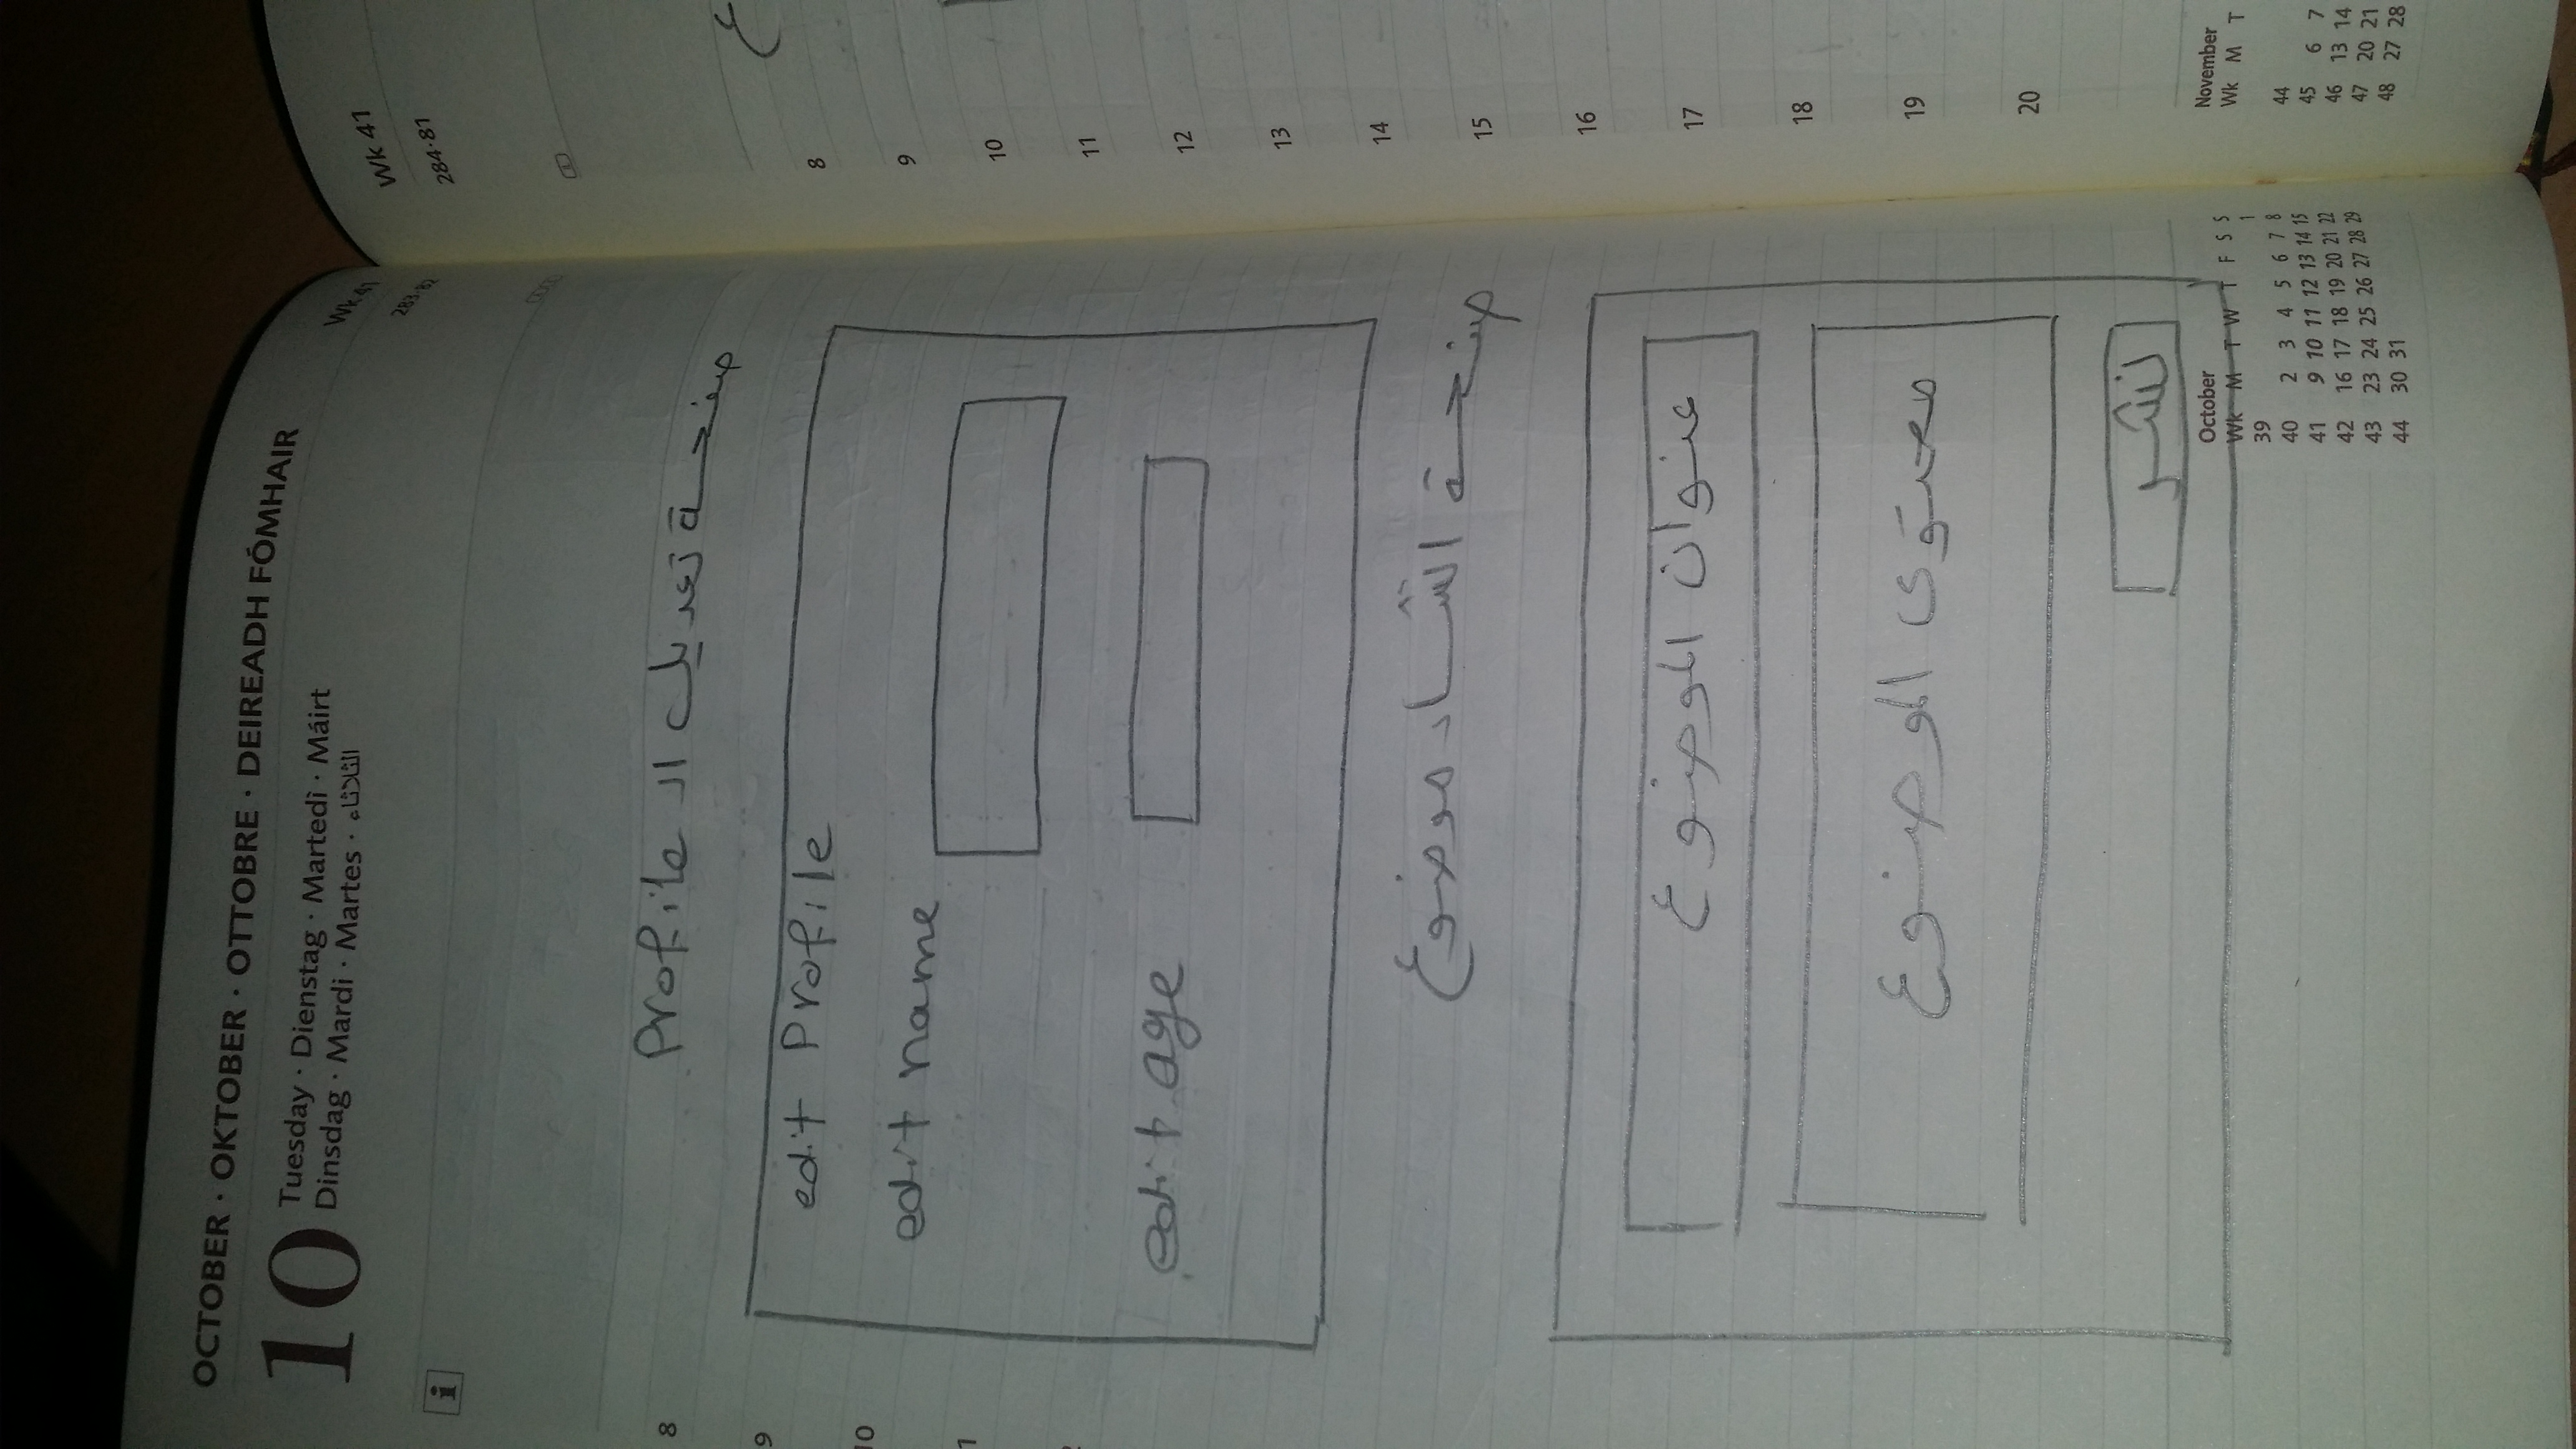 OCTOBER · OKTOBER · OTTOBRE · DEIREADH FÓMHAIR
10
Tuesday · Dienstag · Martedì · Máirt
Dinsdag · Mardi · Martes · الثلاثاء
Wk 41
283·82
صفحة تعديل الـ Profile
edit Profile
edit name
edit age
صفحة انشاء موضوع
عنوان الموضوع
محتوى الموضوع
نشر
8
9
10
1
2
October
Wk M T W T F S S
1
39
40 2 3 4 5 6 7 8
41 9 10 11 12 13 14 15
42 16 17 18 19 20 21 22
43 23 24 25 26 27 28 29
44 30 31
Wk 41
284·81
ع
8
9
10
11
12
13
14
15
16
17
18
19
20
November
Wk M T
44
45 6 7
46 13 14
47 20 21
48 27 28